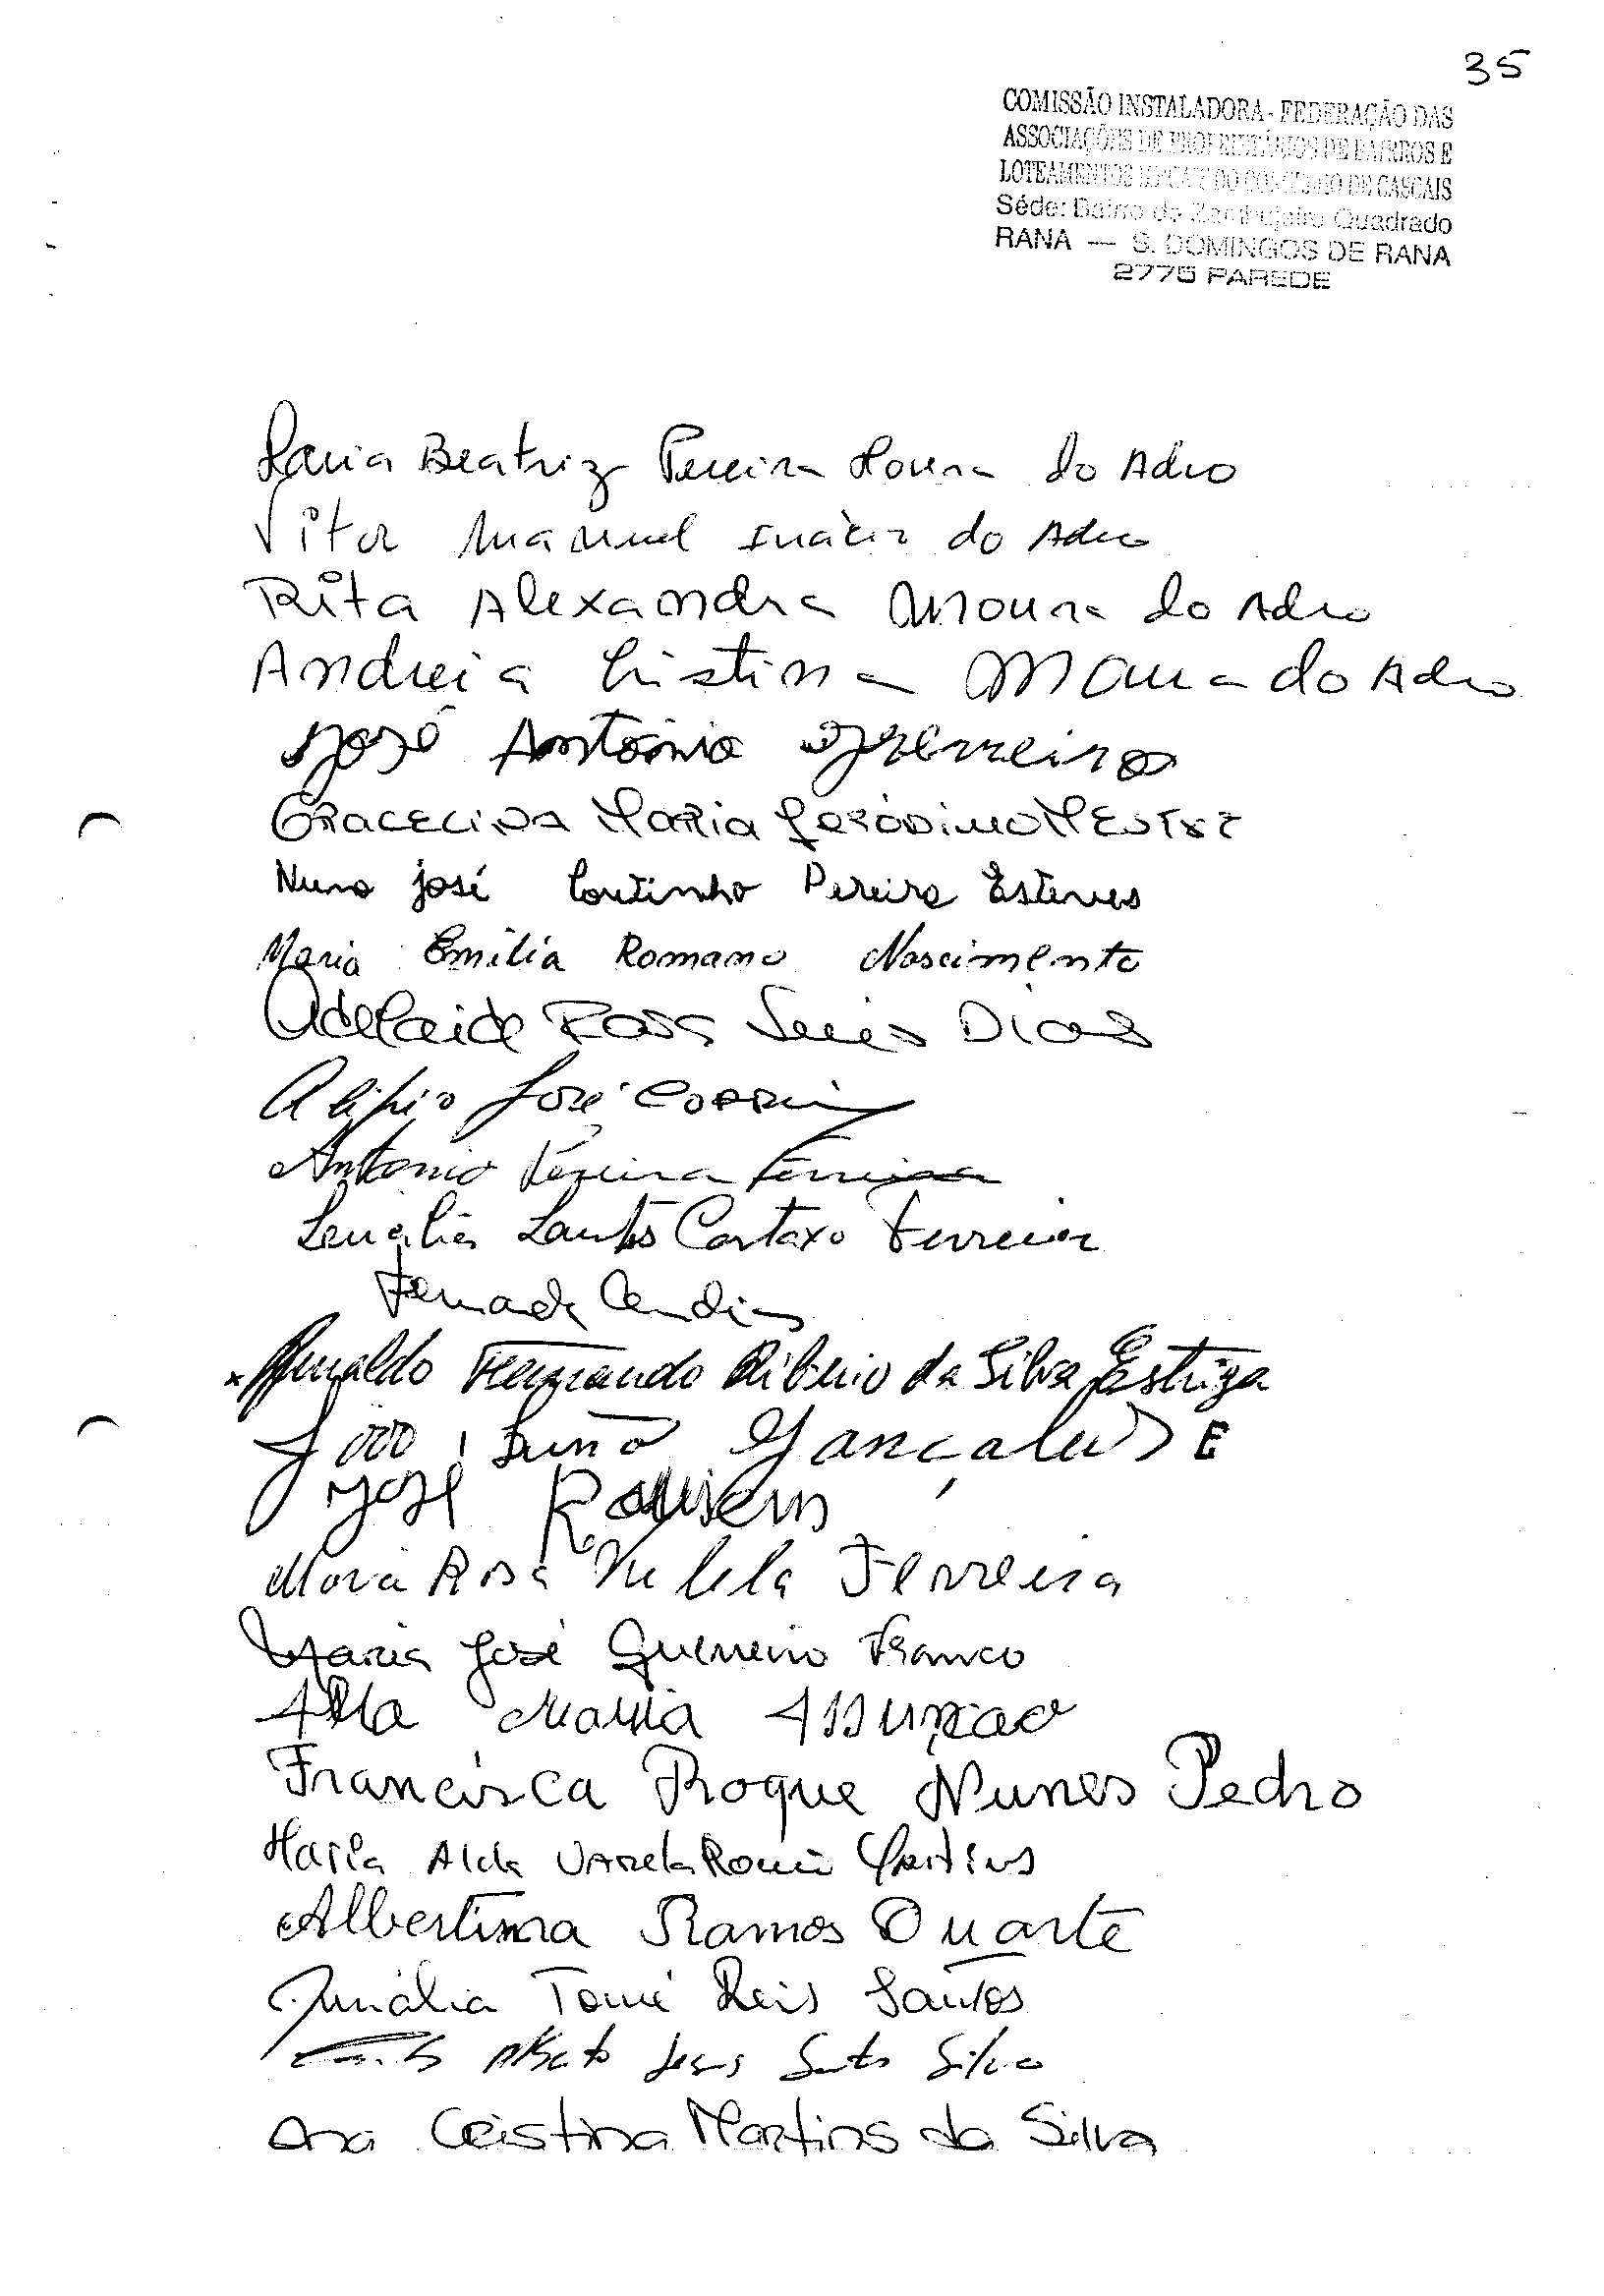 35
COMISSÃO INSTALADORA - FEDERAÇÃO DAS
ASSOCIAÇÕES DE PROPRIETÁRIOS DE BAIRROS E
LOTEAMENTOS DO CONCELHO DE CASCAIS
Séde: Bairro do Zambujeiro Quadrado
RANA — S. DOMINGOS DE RANA
2775 PAREDE
Maria Beatriz Pereira Moura do Adro
Vitor Manuel Inácio do Adro
Rita Alexandra Moura do Adro
Andreia Cristina Moura do Adro
José António Ferreira
GRACELINDA MARIA Jerónimo MESTRE
Nuno José Coutinho Pereira Esteves
Maria Emília Romano Nascimento
Adelaide Rosa Dias
Alipio José Correia
Antonio Pereira Ferreira
Santos Cartaxo Ferreira
Fernanda
Arnaldo Fernando Ribeiro da Silva Estriga
João Gonçalves E
José
Maria Rosa Vilela Ferreira
Maria José Guerreiro Franco
Alda Maria Assunção
Francisca Roque Nunes Pedro
Maria Alda Varela Martins
Albertina Ramos Duarte
Amália Tomé Reis Santos
Alberto Jesus Santos Silva
Ana Cristina Martins da Silva